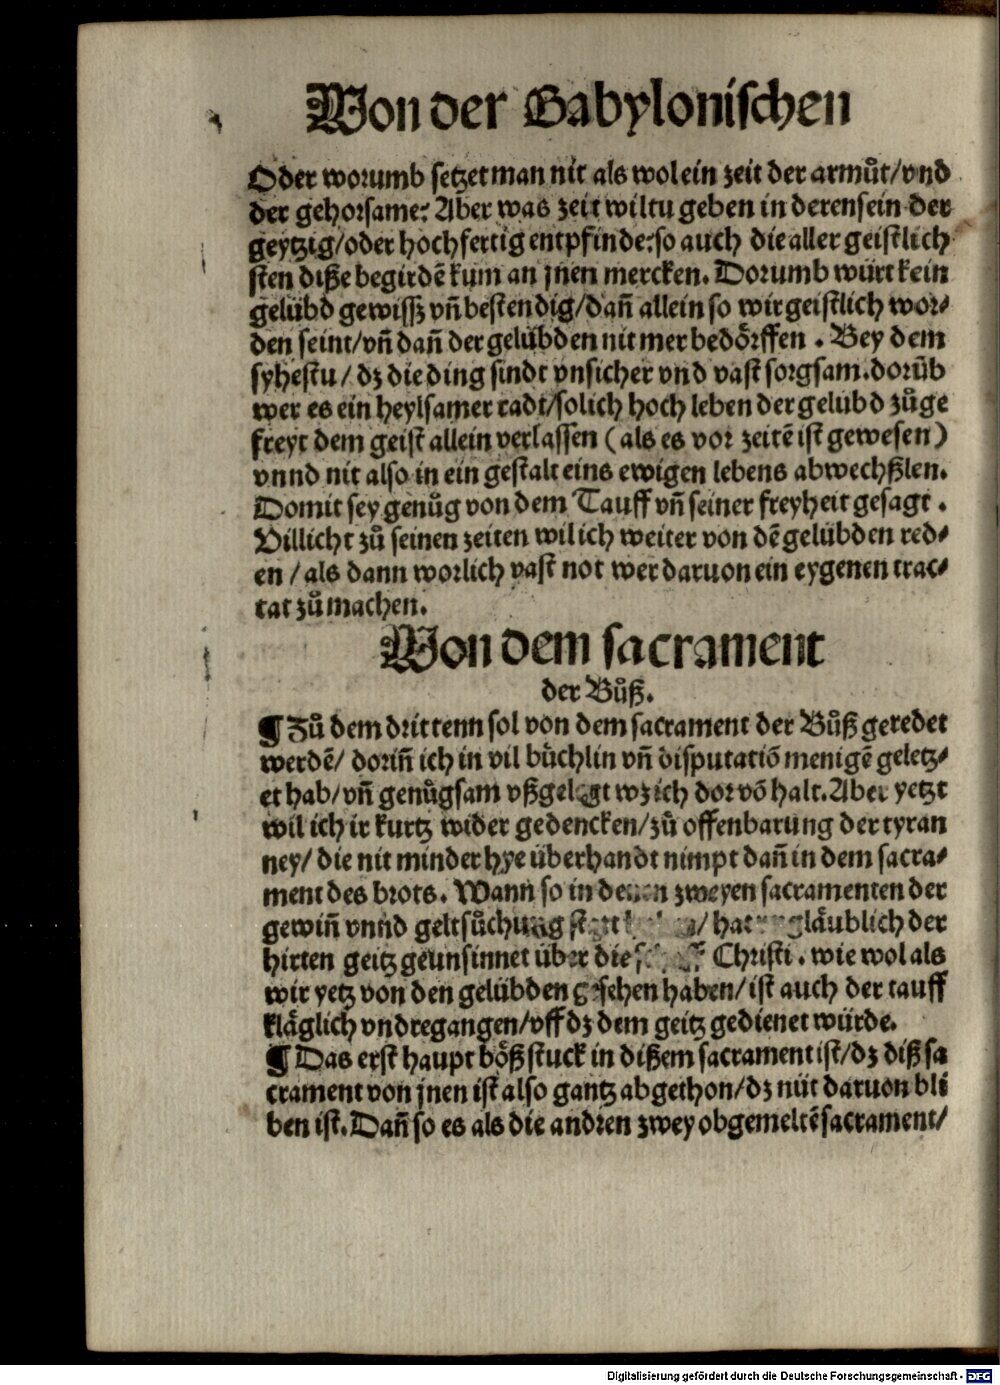 Von der Babylonischen
Oder worumb setzet man nit als wol ein zeit der armůt/vnd
der gehorsame: Aber was zeit wiltu geben in deren sein der
geytzig/oder hochfertig entpfinde:so auch die aller geistlich
sten diße begirdē kum an jnen mercken. Dorumb würt kein
gelübd gewissz vn̄ bestendig/dan̄ allein so wir geistlich wor⸗
den seint/vn̄ dan̄ der gelübden nit mer bedörffen . Bey dem
syhestu/ dz die ding sindt vnsicher vnd vast sorgsam.dorūb
wer es ein heylsamer radt/solich hoch leben der gelübd zůge
freyt dem geist allein verlassen (als es vor zeitē ist gewesen)
vnnd nit also in ein gestalt eins ewigen lebens abwechßlen.
Domit sey genůg von dem Tauff vn̄ seiner freyheit gesagt .
Villicht zů seinen zeiten wil ich weiter von dē gelübden red⸗
en / als dann worlich vast not wer daruon ein eygenen trac⸗
tat zů machen.
Von dem sacrament
der Bůß.
¶ Zů dem drittenn sol von dem sacrament der Bůß geredet
werdē/ dorin̄ ich in vil büchlin vn̄ disputatiō menigē geletz⸗
et hab/vn̄ genůgsam vßgelegt wz ich dor vō halt. Aber yetzt
wil ich ir kurtz wider gedencken/zů offenbarung der tyran
ney/ die nit minder hye überhandt nimpt dan̄ in dem sacra⸗
ment des brots. Wann so in denen zweyen sacramenten der
gewin̄ vnnd geltsůchung / hat der
hirten geitz geunsinnet über die Christi . wie wol als
wir yetz von den gelübden gesehen haben/ ist auch der tauff
kläglich vndregangen/vff dz dem geitz gedienet würde.
¶ Das erst haupt bößstuck in dißem sacrament ist/dz diß sa
crament von jnen ist also gantz abgethon/dz nüt daruon bli
ben ist. Dan̄ so es als die andren zwey obgemeltē sacrament/
Digitalisierung gefördert durch die Deutsche Forschungsgemeinschaft - DFG